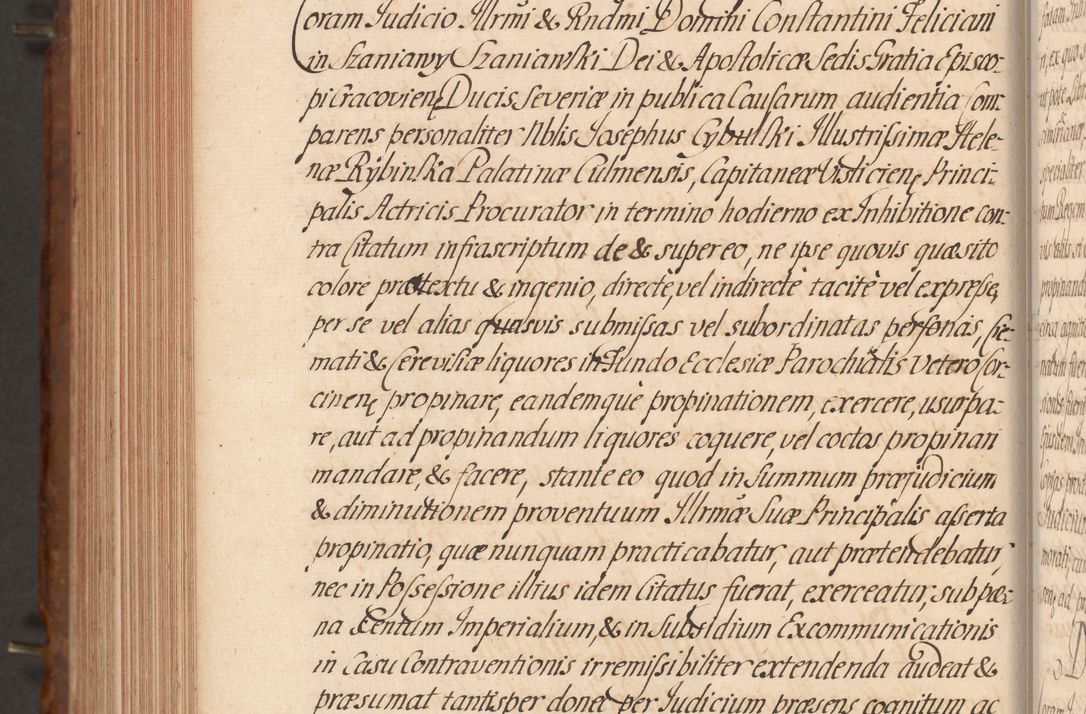 Coram Judicio Illrmi & Rndmi Domini Constantini Feliciani
in Szaniawy Szaniawski Dei & Apostolicæ Sedis Gratia Episco-
pi Cracovien Ducis Severiæ in publica Causarum audientia Com-
parens personaliter Nblis Josephus Cybulski Illustrissimæ Hele-
næ Rybinska Palatinæ Culmensis, Capitaneæ Visliciens Princi-
palis Actricis Procurator in termino hodierno ex Inhibitione con-
tra Citatum infrascriptum de & super eo, ne ipse quovis quæsito
colore prætextu & ingenio, directè, vel indirectè tacitè vel expresse,
per se vel alias quasvis submissas vel subordinatas personas, Cre-
mati & Cerevisiæ liquores in Fundo Ecclesiæ Parochialis Vetero Cor-
cinen propinare, eandemquè propinationem, exercere, usurpa-
re, aut ad propinandum liquores coquere, vel coctos propinari
mandare, & facere, stante eo quod in Summum præjudicium
& diminutionem proventuum Illrmæ Suæ Principalis asserta
propinatio, quæ nunquam practicabatur, aut prætendebatur,
nec in Possessione illius idem Citatus fuerat, exerceatur, sub pæ-
na Centum Imperialium, & in Subsidium Excommunicationis
in Casu Contraventionis irremissibiliter extendenda audeat &
præsumat tantisper donec per Judicium præsens cognitum ac